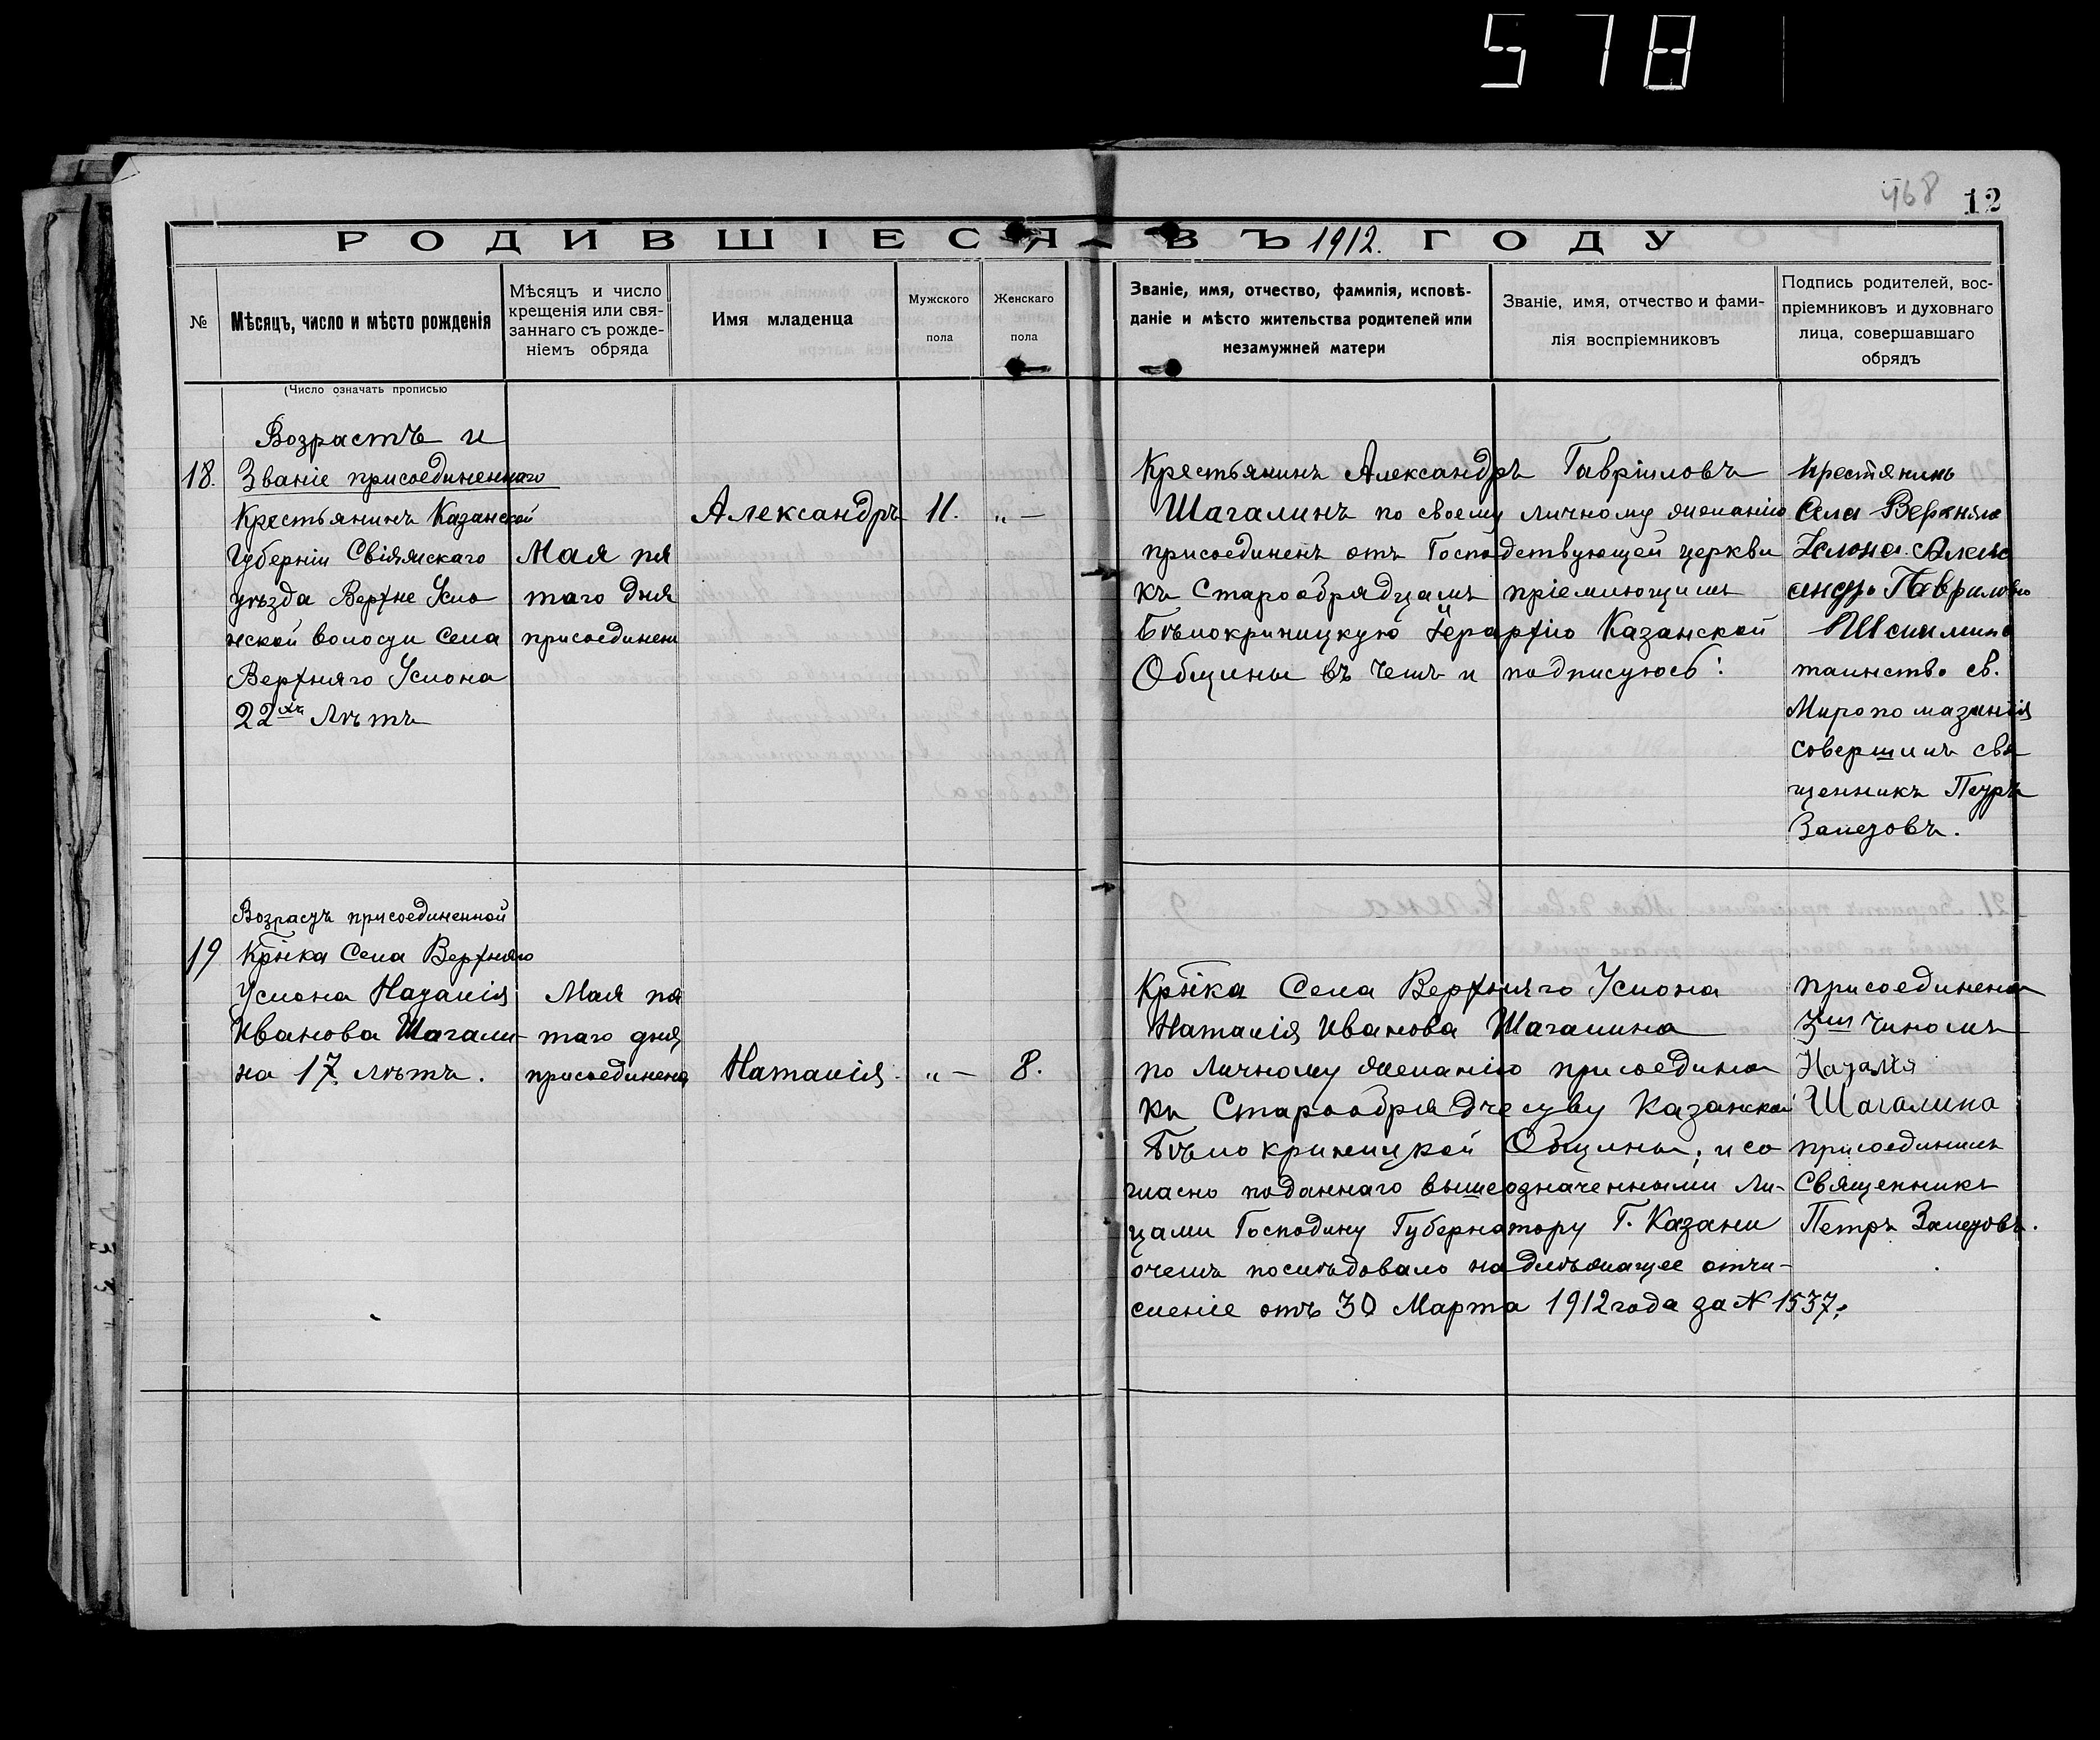 578
468
12
РОДИВШІЕСЯ ВЪ 1912. ГОДУ
№
Мѣсяцъ, число и мѣсто рожденія
Мѣсяцъ и число
крещенія или свя-
заннаго съ рожде-
ніемъ обряда
Имя младенца
Мужского
пола
Женскаго
пола
Званіе, имя, отчество, фамилія, исповѣ-
даніе и мѣсто жительства родителей или
незамужней матери
Званіе, имя, отчество и фами-
лія воспріемниковъ
Подпись родителей, вос-
пріемниковъ и духовнаго
лица, совершавшаго
обрядъ
(Число означать прописью
18.
Возрастъ и
Званіе присоединеннаго
Крестьянинъ Казанской
Губерніи Свіяжскаго
уѣзда Верхне Усло
нской волости села
Верхняго Услона
22хъ лѣтъ
Мая пя
таго дня
присоединенъ
Александръ
11.
„ —
Крестьянинъ Александръ Гавріиловъ
Шагалинъ по своему личному желанію
присоединенъ отъ Господствующей церкви
къ Старообрядцамъ пріемлющимъ
Бѣлокриницкую Іерархію Казанской
Общины въ чемъ и подписуюсь:
крестянинъ
Села Верхняго
Услона Алекс
андръ Гавриловъ
Шагалинъ
таинство св.
Миропомазанія
совершилъ свя
щенникъ Петръ
Залетовъ.
19
Возрастъ присоединенной
Кр҃нка Села Верхняго
Услона Наталія
Иванова Шагали-
на 17 лѣтъ.
Мая пя
таго дня
присоединена
Наталія
„ —
8.
Кр҃нка Села Верхняго Услона
Наталія Иванова Шагалина
по личному желанію присоедина
къ Старообрядчеству Казанской
Бѣлокриницкой Общины, и со
гласно поданнаго вышеозначенными ли-
цами Господину Губернатору Г. Казани
очемъ послѣдовало надлѣжащее отчи-
сленіе отъ 30 Марта 1912 года за № 1537.
присоединена
3мъ Чиномъ
Наталія
Шагалина
присоединилъ
Священникъ
Петръ Залетовъ.